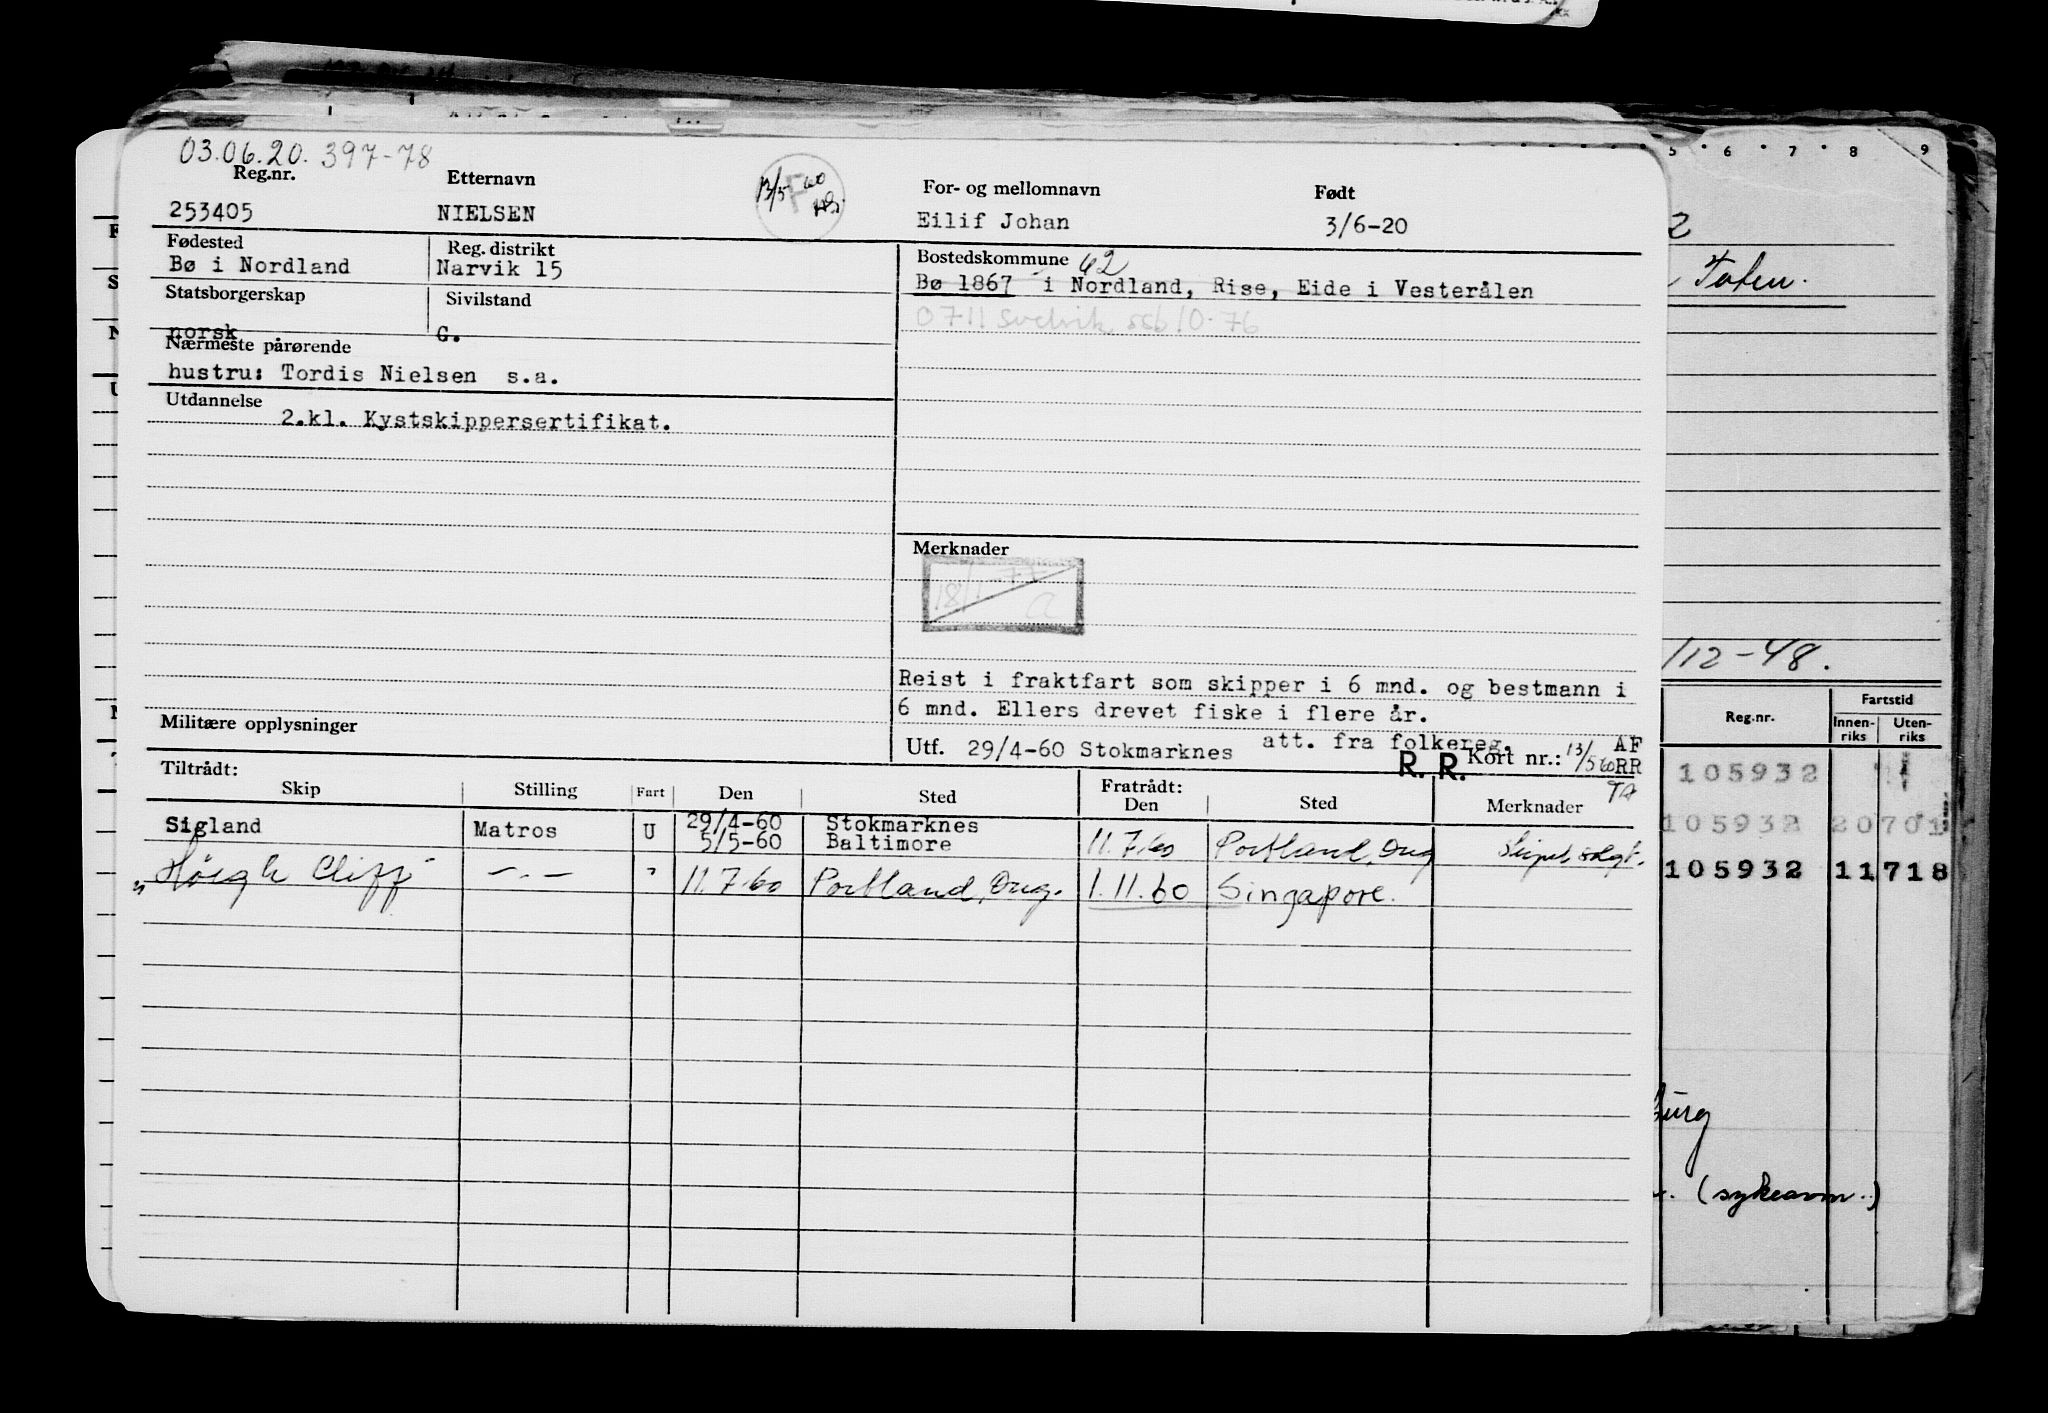 03.06.20. 397-78
Reg.nr. Etternavn For- og mellomnavn Født
253405 NIELSEN Eilif Johan 3/6-20
13/5 60
F
Fødested Reg. distrikt Bostedskommune 62
Bø i Nordland Narvik 15 Bø 1867 i Nordland, Rise, Eide i Vesterålen
Statsborgerskap Sivilstand
0711 Svelvik ssb 10-76
norsk G.
Nærmeste pårørende
hustru: Tordis Nielsen s.a.
Utdannelse
2.kl. Kystskippersertifikat.
Merknader
18/1-77
a
Reist i fraktfart som skipper i 6 mnd. og bestmann i
6 mnd. Ellers drevet fiske i flere år.
Militære opplysninger
att. fra folkereg. AF
Utf. 29/4-60 Stokmarknes R. R. Kort nr.: 13/5 60 RR
Tiltrådt: Fratrådt:
Skip Stilling Fart Den Sted Den Sted Merknader
Sigland Matros U 29/4-60 Stokmarknes 11.7.60 Portland, Oreg Skipet solgt.
5/5-60 Baltimore
" Høegh Cliff - . - " 11.7.60 Portland, Oreg. 1.11.60 Singapore.
5 6 7 8 9
2
Toten.
/12-48.
Reg.nr. Fartstid
Innen-
riks Uten-
riks
105932
105932 20701
105932 11718
burg
(sykeavm.)